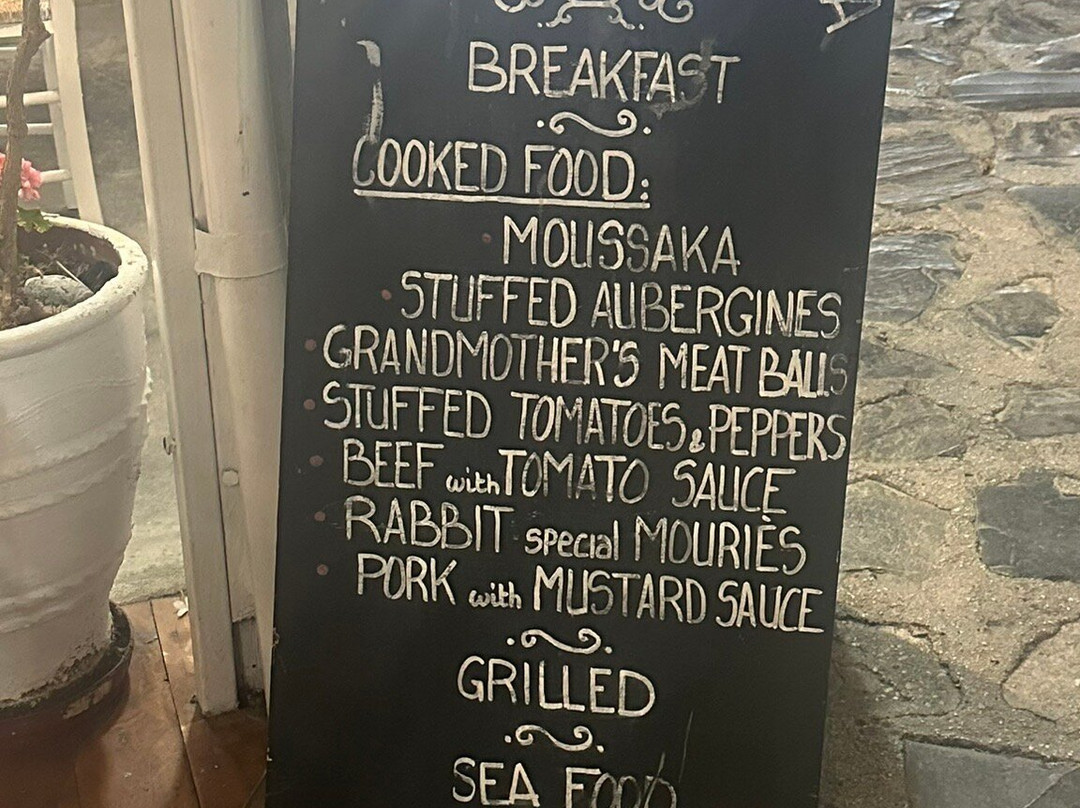 BREAKFAST
COOKED FOOD:
• MOUSSAKA
• STUFFED AUBERGINES
• GRANDMOTHER'S MEAT BALLS
• STUFFED TOMATOES & PEPPERS
• BEEF with TOMATO SAUCE
• RABBIT special MOURIÈS
• PORK with MUSTARD SAUCE
GRILLED
SEA FOOD